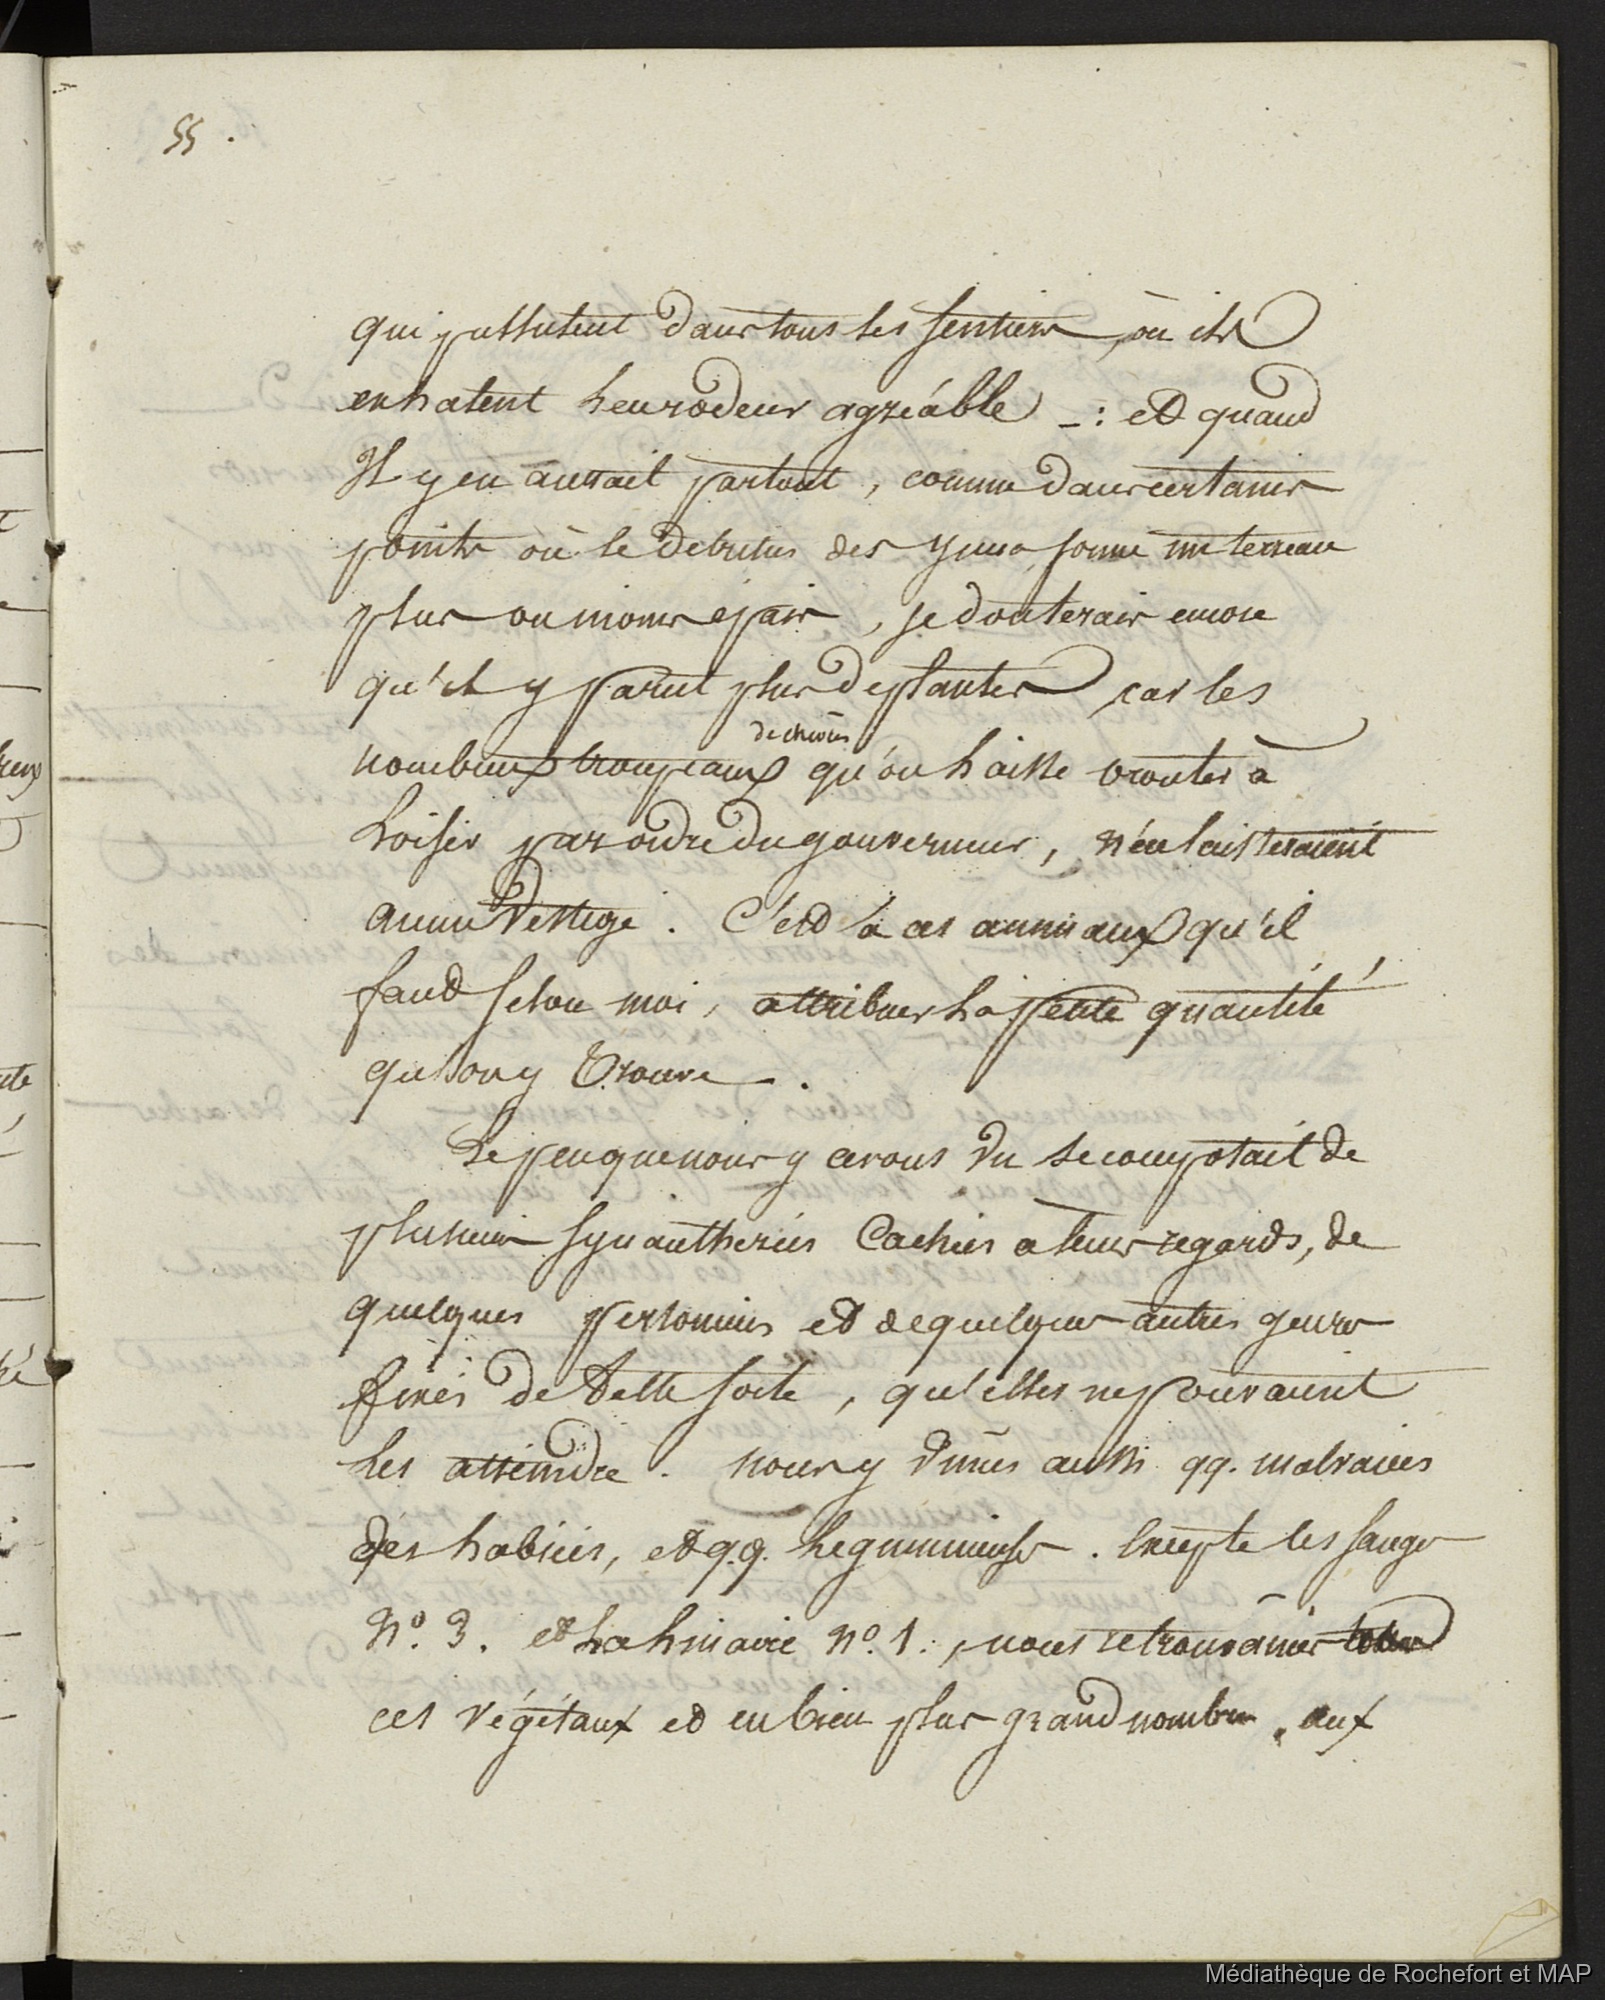 55.
qui pullulent dans tous les sentiers, où ils
exhalent leur odeur agréable _: et quand
Il y en aurait partout, comme dans certains
points où le debritus des forme un terreau
plus ou moins epais, je douterais encore
qu'il y parut plus de plantes car les
de chevres
nombreux troupeaux qu'on laisse brouter à
Loisir par ordre du gouverneur, n'en laisseraient
aucun Vestige. C'est à ces animaux qu'il
faut selon moi, attribuer la petite quantité
qu'on y Trouve.
Le peu que nous y avons vu se composait de
plusieurs Synantherées Cachées a leurs regards, de
quelques et de quelques autres genres
fixés de telle sorte, qu'elles ne pouvaient
les atteindre. nous y vîmes aussi qq. malvacées
des labiées, et q.q. Legumineuses. Excepté les sauges
N.º 3. et la linaire N.º 1., nous retrouvâmes tous
ces végétaux et en bien plus grand nombre, aux
Médiathèque de Rochefort et MAP